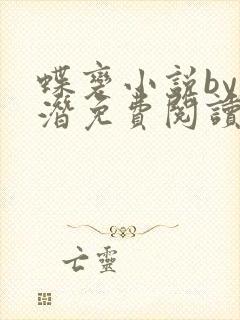 蝶变小説by
潛免費閱讀
亡靈